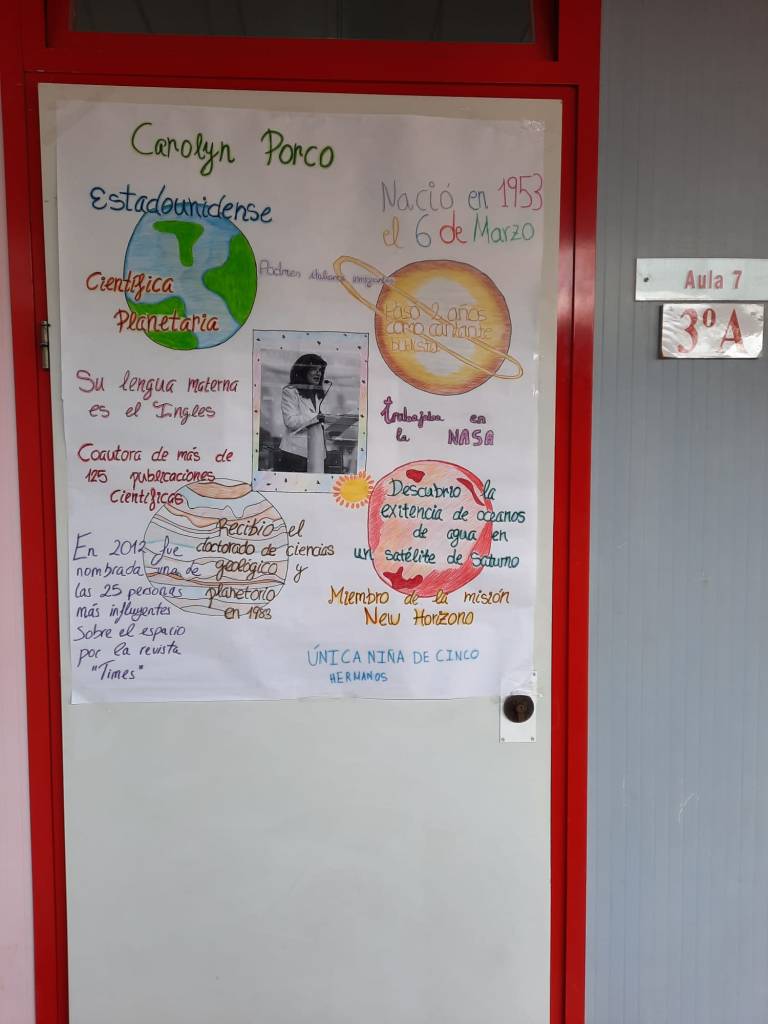 Carolyn Porco
Estadounidense
Nació en 1953
el 6 de Marzo
Padres italianos inmigrantes
Científica
Planetaria
Pasó 2 años
como cantante
budista
Su lengua materna
es el Ingles
trabajaba en
la NASA
Coautora de más de
125 publicaciones
Científicas
Descubrio la
exitencia de oceanos
de agua en
un satélite de Saturno
Recibio el
doctorado de ciencias
geológico y
planetario
en 1983
En 2012 fue
nombrada una de
las 25 personas
más influyentes
Sobre el espacio
por la revista
"Times"
Miembro de la misión
New Horizono
ÚNICA NIÑA DE CINCO
HERMANOS
Aula 7
3º A